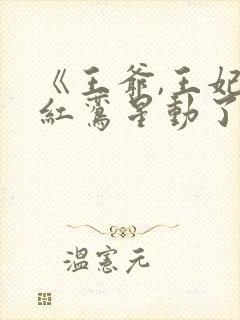 《王爷,王妃
紅鸞星動了
溫憲元